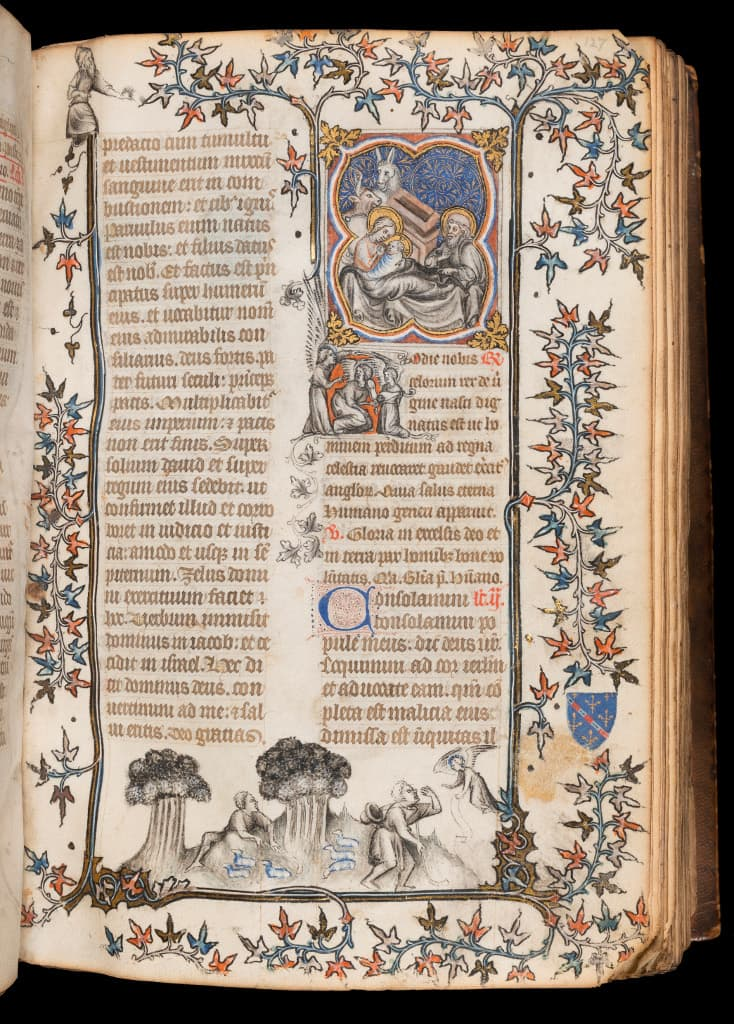 127
predacio cum tumultu
et uestimentum mixtū
sanguine erit in com
bustionem: et cib̄ ignis
paruulus enim natus
est nobis: et filius datus
est nob̄. Et factus est p̄n
cipatus super humerū
eius. et uocabitur nom̄
eius admirabilis con
siliarius. deus fortis. pa
ter futuri seculi: princeps
pacis. Multiplicabit᷑
eius imperium: et pacis
non erit finis. Super
solium dauid et super
regnum eius sedebit: ut
confirmet illud et corro
boret in iudicio et iusti
cia: amodo et usq; in se
piternum. Zelus domi
ni exercituum faciet
hec. Verbum immisit
dominus in iacob: et ce
cidit in israel. Hec di
cit dominus deus. con
uertimini ad me: et sal
ui eritis. Deo gracias
Hodie nobis
celorum rex de ū
gine nasci dig
natus est ut ho
minem perditum ad regna
celestia reuocaret gaudet exercit᷑
anglor̄. Quia salus eterna
humano generi apparuit.
V̄. Gloria in excelsis deo et
in terra pax homīb; bone uo
lūtatis. Qia. Gl̄ia p̄.
Consolamini lc̄. ij.
Consolamini po
pule meus: dic̄ deus ur̄.
Loquimini ad cor ierlm̄
et aduocate eam. qm̄ cō
pleta est malicia eius:
dimissa est iniquitas il